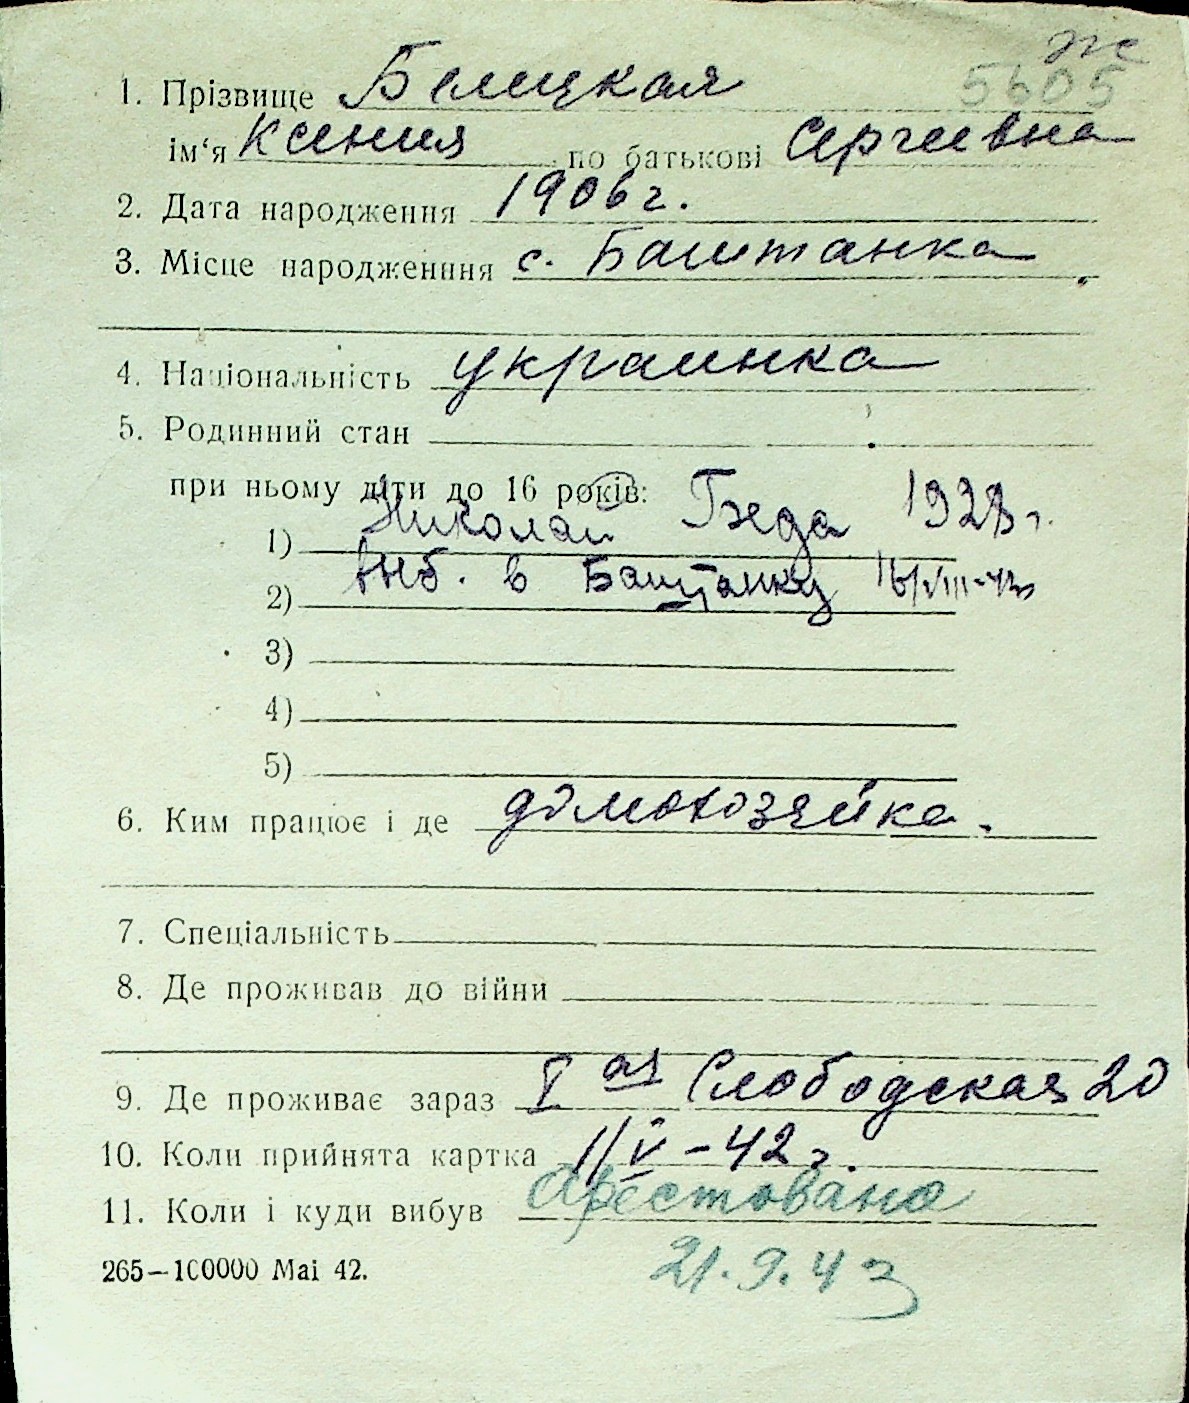 же
5605
1. Прізвище Белицкая
ім'я Ксения по батькові Сергеевна
2. Дата народження 1906 г.
3. Місце народженння с. Баштанка
4. Національність украинка
5. Родинний стан
при ньому діти до 16 років:
1) Николай Беда 1928 г.
2) выб. в Баштанку 16/VIII-43
3)
4)
5)
6. Ким працює і де домохозяйка.
7. Спеціальність
8. Де проживав до війни
9. Де проживає зараз I ая Слободская 20
10. Коли прийнята картка 1/V-42 г.
11. Коли і куди вибув арестована
265—100000 Mai 42.
21.9.43